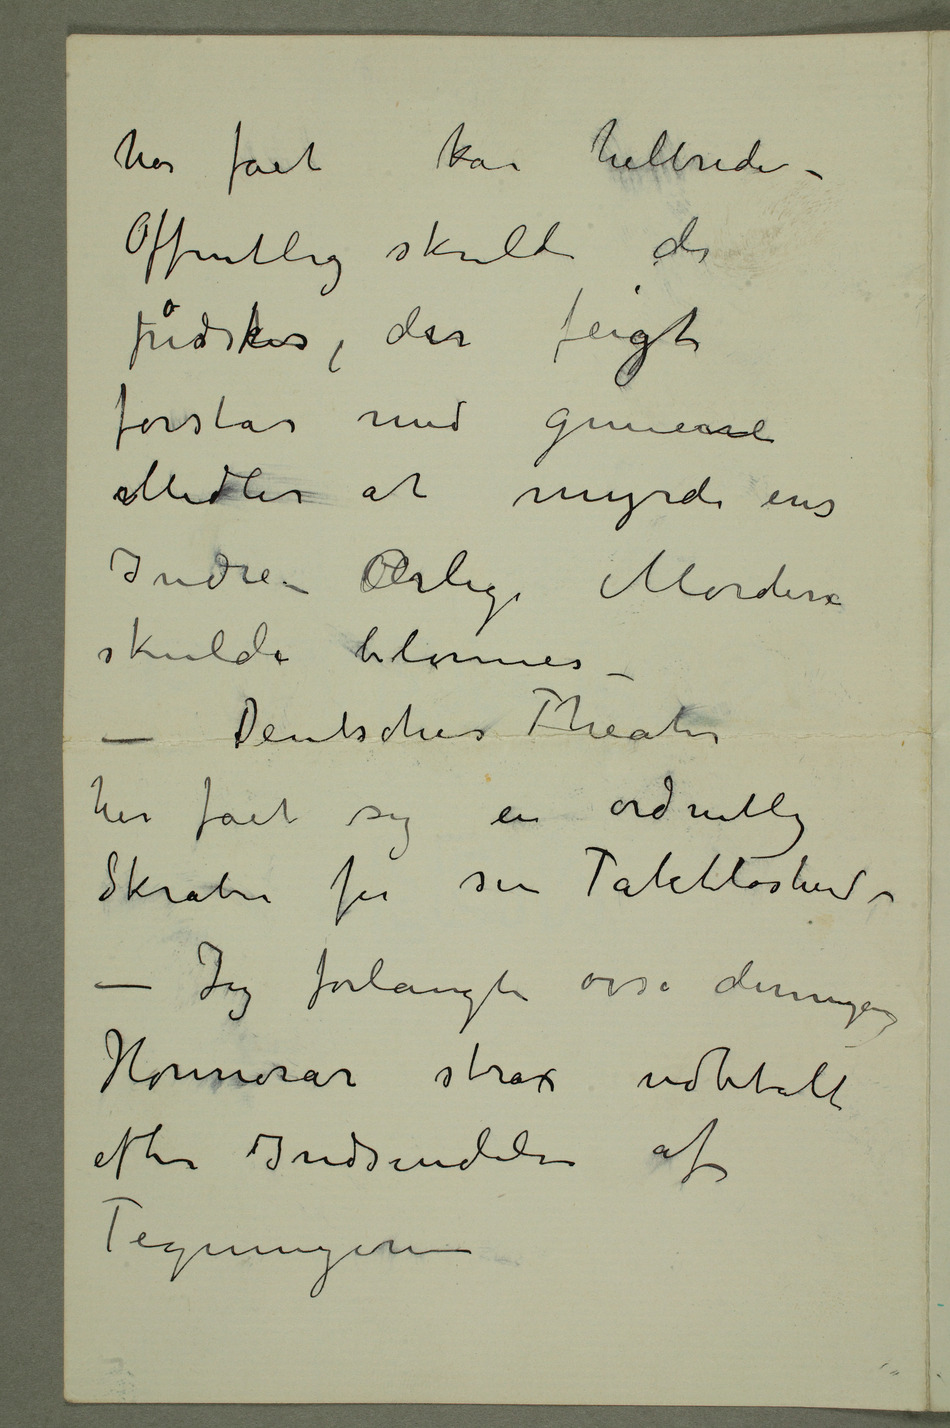 har fået kan helbrede –
Offentlig skulde de
piidskes, der feigt
forstår med gemene
Midler at myrde ens
Indre – Ærlige Mordere
skulde belønnes –
— Deutsches Theater
har fået sig en ordentlig
Skrabe for sin Taktløshed –
— Jeg forlangte osså dennegang
Honnorar strax udbetalt
efter Indsendelse af
Tegningerne